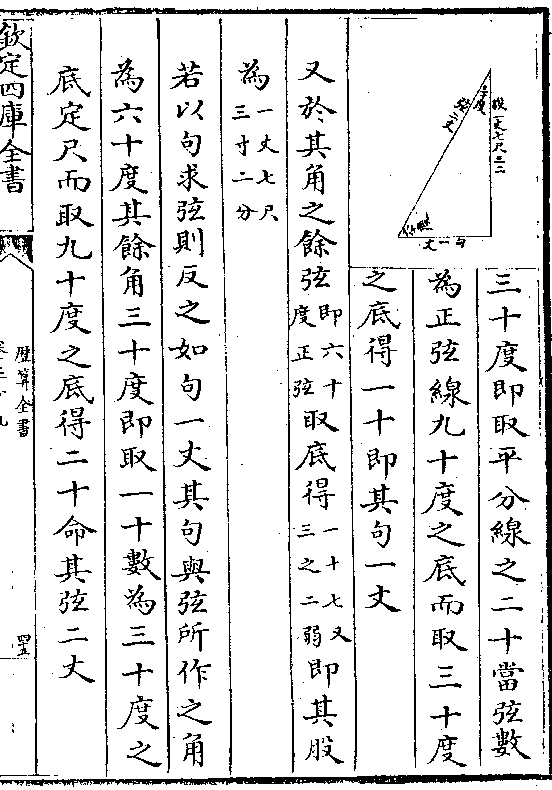 三十度即取平分線之二十當弦數
為正弦線九十度之底而取三十度
之底得一十即其句一丈
又於其角之餘弦即六十度正弦取底得一十七又三之二弱即其股
為一丈七尺三寸二分
若以句求弦則反之如句一丈其句與弦所作之角
為六十度其餘角三十度即取一十數為三十度之
底定尺而取九十度之底得二十命其弦二丈
股一丈七尺三二
三十度
弦二丈
句一丈
欽定四庫全書
歷算全書